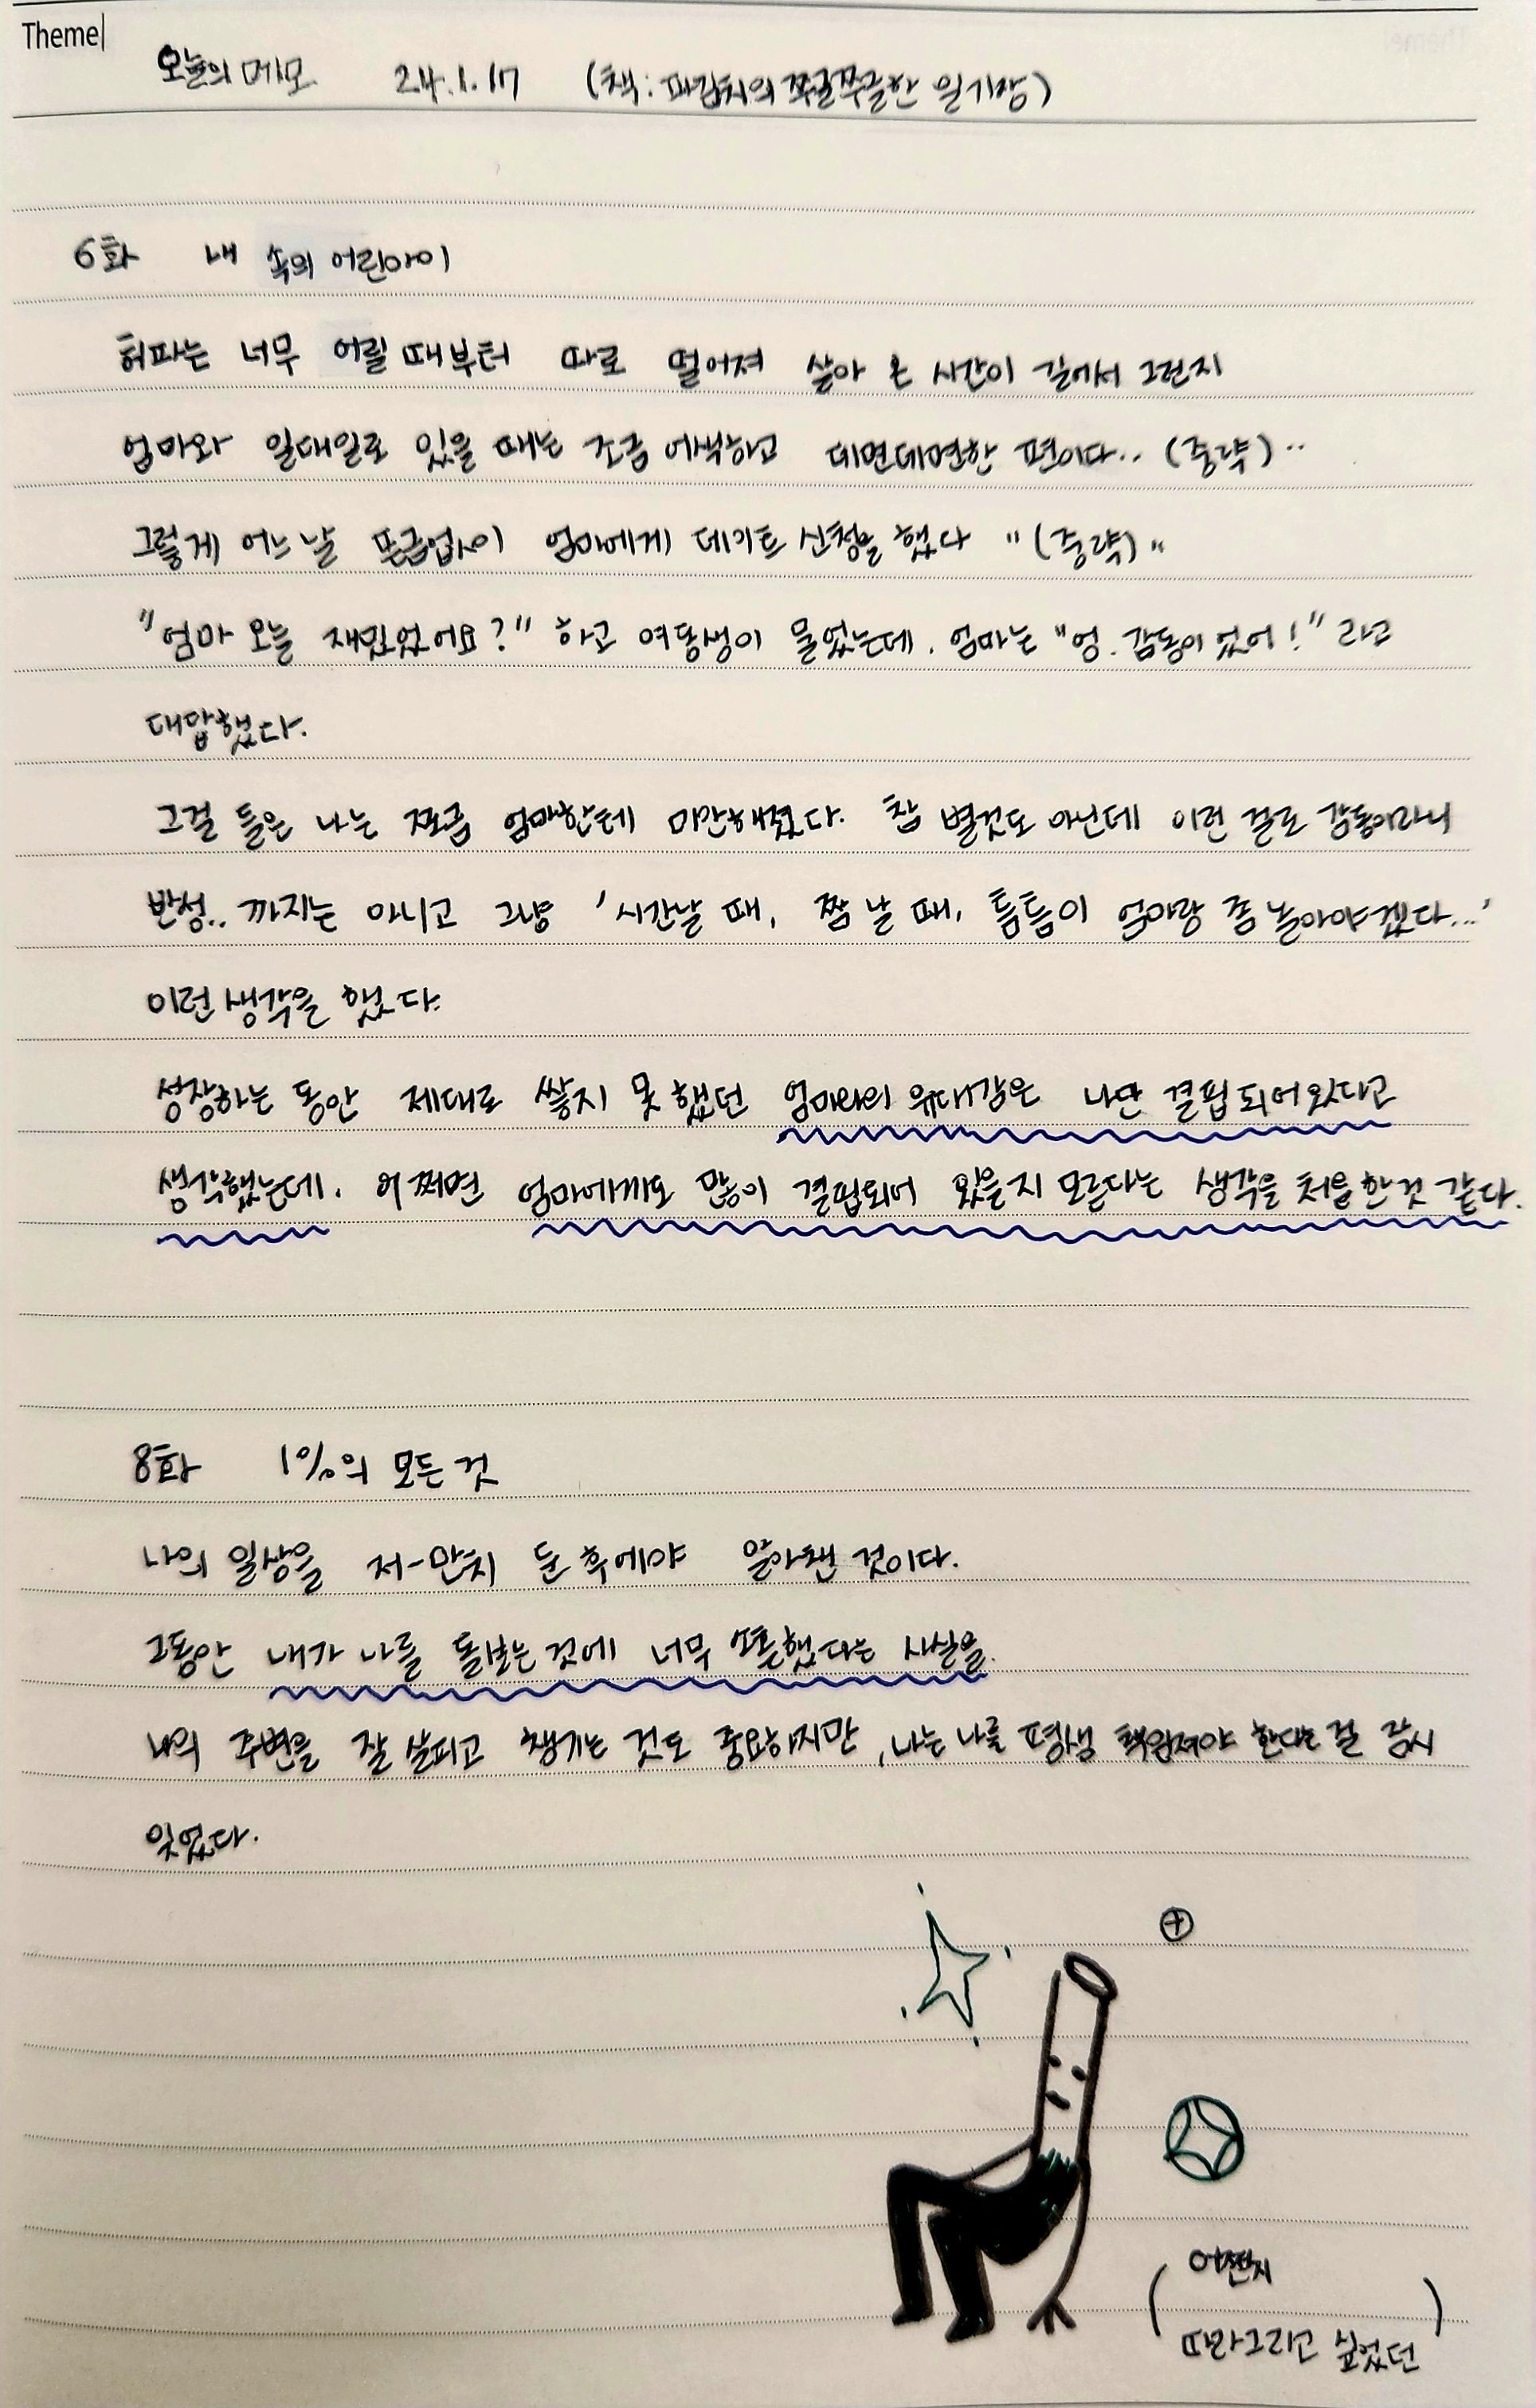 Theme
오늘의 메모 24.1.17 (책: 파김치의 쭈글쭈글한 일기장)
6화 내 속의 어린아이
허파는 너무 어릴 때부터 따로 떨어져 살아 온 시간이 길어서 그런지
엄마와 일대일로 있을 때는 조금 어색하고 데면데면한 편이다.. (중략)..
그렇게 어느 날 뜬금없이 엄마에게 데이트 신청을 했다 "(중략)"
"엄마 오늘 재밌었어요?" 하고 여동생이 물었는데. 엄마는 "엉. 감동이 었어!" 라고
대답했다.
그걸 들은 나는 쪼금 엄마한테 미안해졌다. 참 별것도 아닌데 이런 걸로 감동이라니
반성.. 까지는 아니고 그냥 '시간날 때, 짬 날 때, 틈틈이 엄마랑 좀 놀아야겠다...'
이런 생각을 했다.
성장하는 동안 제대로 쌓지 못 했던 엄마와의 유대감은 나만 결핍되어왔다고
생각했는데. 어쩌면 엄마에게도 많이 결핍되어 있을지 모른다는 생각을 처음 한 것 같다.
8화 1%의 모든 것
나의 일상을 저-만치 둔 후에야 알아챈 것이다.
그동안 내가 나를 돌보는 것에 너무 소홀했다는 사실을.
나의 주변을 잘 살피고 챙기는 것도 중요하지만, 나는 나를 평생 책임져야 한다는 걸 잠시
잊었다.
어쩐지
따라그리고 싶었던